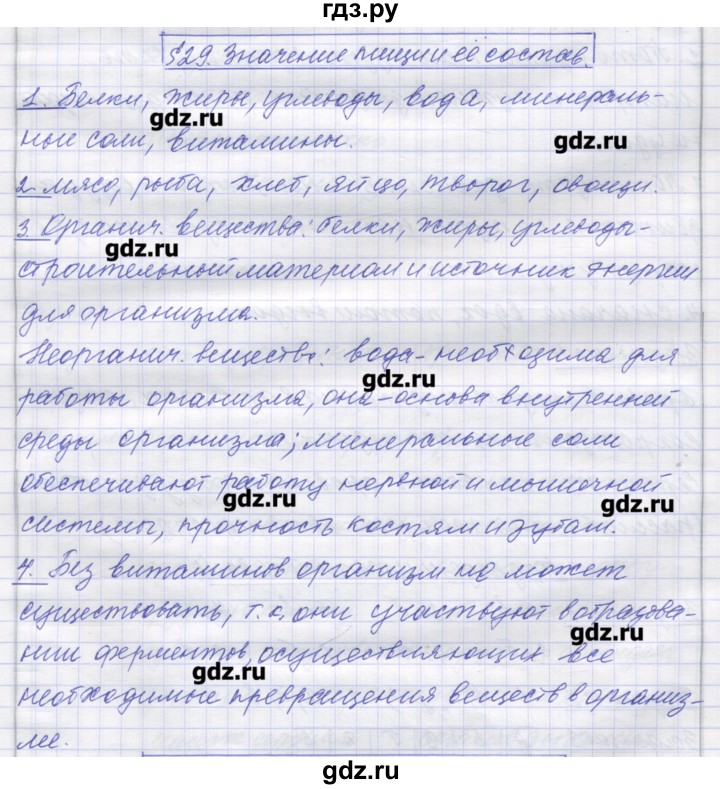 гдз.ру
§29. Значение пищи и её состав.
1. Белки, жиры, углеводы, вода, минераль-
gdz.ru
ные соли, витамины.
gdz.ru
2. мясо, рыба, хлеб, яйцо, творог, овощи.
3. Органич. вещества: белки, жиры, углеводы-
gdz.ru
строительный материал и источник энергии
для организма.
Неорганич. вещества: вода-необходима для
gdz.ru
работы организма, она-основа внутренней
среды организма; минеральные соли
обеспечивают работу нервной и мышечной
gdz.ru
gdz.ru
системы, прочность костям и зубам.
4. Без витаминов организм не может
существовать, т.к. они участвуют в образова-
gdz.ru
нии ферментов, осуществляющих все
gdz.ru
необходимые превращения веществ в организ-
ме.
gdz.ru